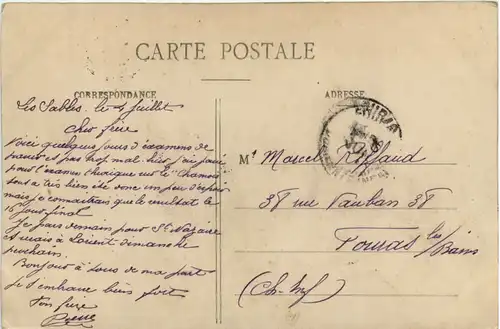 CARTE POSTALE
CORRESPONDANCE
ADRESSE
Les Sables. le 4 Juillet
Cher frère
Voici quelques jours d'examens de
et pas trop mal hier j'ai passé
pour l'examen théorique sur le "Chamois"
tout a très bien été donc un peu d'espoir
mais je connaitrais que le resultat le
15 Jour final
Je pars demain pour St Nazaire
et serais à Lorient dimanche
prochain.
Bonjour à tous de ma part
Je t'embrasse bien fort
Ton frère
Pierre
Mr Marcel
38 rue Vauban 38
Fouras les
Bains
(Ch. Inf)